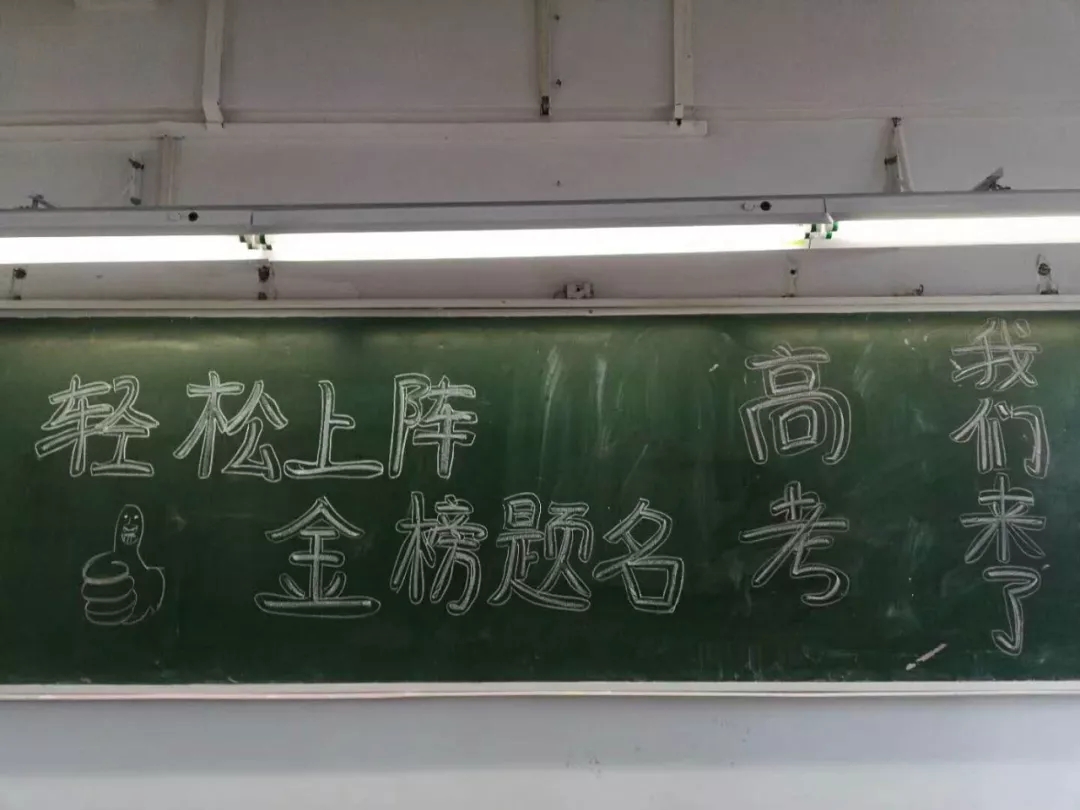 轻松上阵
金榜题名
高考
我们来了